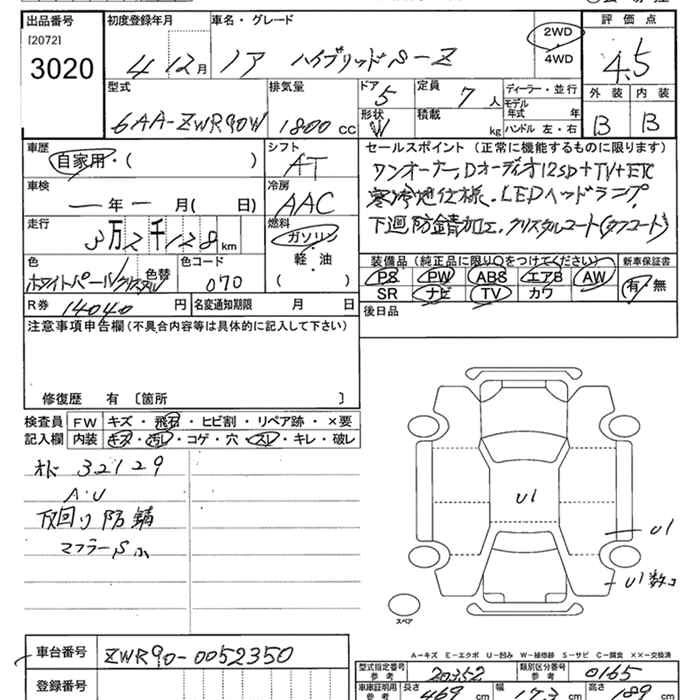 出品番号 初度登録年月 車名・グレード 評価点
[2072]
3020
4 12月 ノア ハイブリッド S-Z 2WD 4WD 4.5
型式 排気量 ドア 定員 ディーラー・並行 外装 内装
6AA-ZWR90W 1800 CC 5 7人 モデル年式 年 B B
形状 W 積載 kg ハンドル 左・右
車歴 シフト セールスポイント (正常に機能するものに限ります)
自家用・( ) AT ワンオーナー、Dオーディオ12SD+TV+ETC
車検 冷房 寒冷地仕様、LEDヘッドランプ、
ー年ー月( 日) AAC 下廻防錆加工、クリスタルコート(タフコート)
走行 燃料
3万2千128km ガソリン
軽・油
( )
装備品 (純正品に限り○をつけてください) 新車保証書
色 色替 色コード
ホワイトパール/クリスタル 070
PS PW ABS エアB AW 有・無
SR ナビ TV カワ
R券 14040 円 名変通知期限 月 日
後日品
注意事項申告欄 (不具合内容等は具体的に記入して下さい)
修復歴 有 〔箇所 〕
検査員 FW キズ・飛石・ヒビ割・リペア跡・×要
記入欄 内装 キズ・汚レ・コゲ・穴・スレ・キレ・破レ
オド 32129
A・U
下回り防錆
マフラーS小
U1
U1
U1数コ
スペア
車台番号 ZWR90-0052350
A-キズ E-エクボ U-凹み W-補修跡 S-サビ C-腐食 ××-交換済
登録番号
型式指定番号 参考 20352 類別区分番号 参考 0165
車庫証明用 参考 長さ 469 cm 幅 173 cm 高さ 189 cm